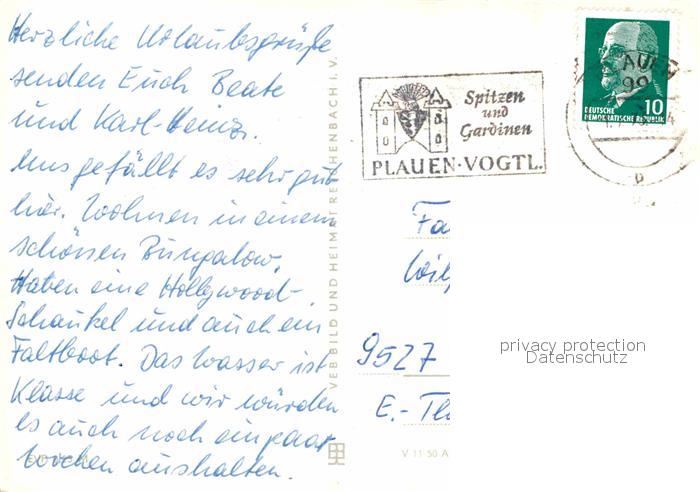 Herzliche Urlaubsgrüße
senden Euch Beate
und Karl-Heinz.
Uns gefällt es sehr gut
hier. Wohnen in einem
schönen Bungalow,
Haben eine Hollywood-
Schaukel und auch ein
Faltboot. Das Wasser ist
Klasse und wir würden
es auch noch ein paar
Wochen aushalten.
VEB BILD UND HEIMAT REICHENBACH I. V.
V 11 50 A
Spitzen
und
Gardinen
PLAUEN·VOGTL.
DEUTSCHE
DEMOKRATISCHE REPUBLIK
10
PLAUEN
99
Fa
9527
E.-
privacy protection
Datenschutz